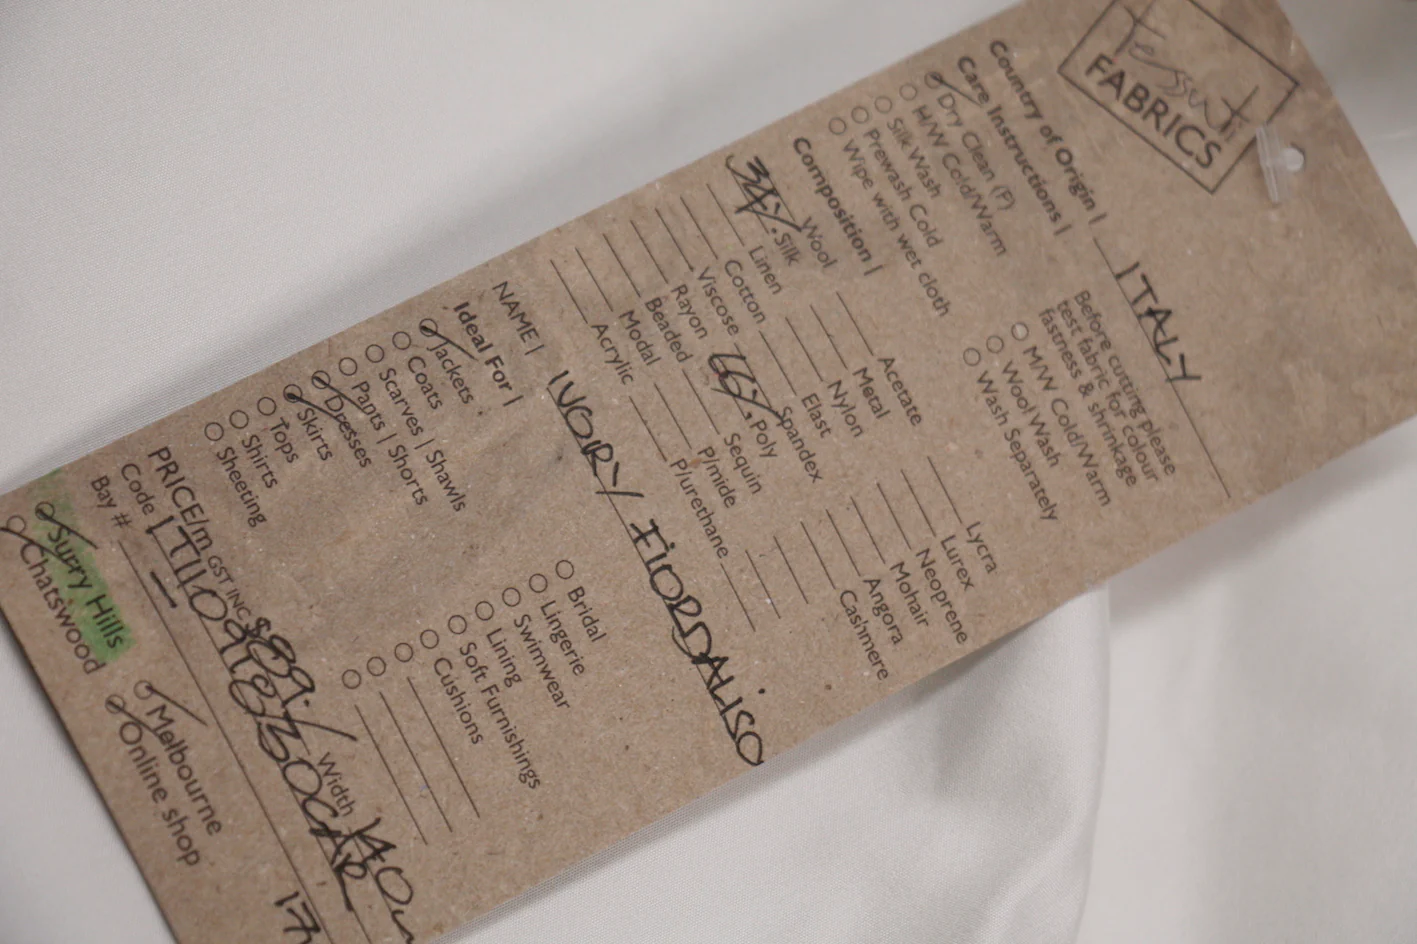 Tessuti
FABRICS
Country of Origin | ITALY
Care Instructions |
Dry Clean (P)
H/W Cold/Warm
Silk Wash
Prewash Cold
Wipe with wet cloth
Before cutting please
test fabric for colour
fastness & shrinkage
M/W Cold/Warm
Wool Wash
Wash Separately
Composition |
Wool Acetate Lycra
34% Silk Metal Lurex
Linen Nylon Neoprene
Cotton Elast Mohair
Viscose Spandex Angora
Rayon 66% Poly Cashmere
Beaded Sequin
Modal P/mide
Acrylic P/urethane
NAME | IVORY FIORDALISO
Ideal For |
Jackets Bridal
Coats Lingerie
Scarves | Shawls Swimwear
Pants | Shorts Lining
Dresses Soft Furnishings
Skirts Cushions
Tops
Shirts
Sheeting
PRICE/m GST INC $89.- Width 140
Code
Bay #
Surry Hills Melbourne
Chatswood Online shop